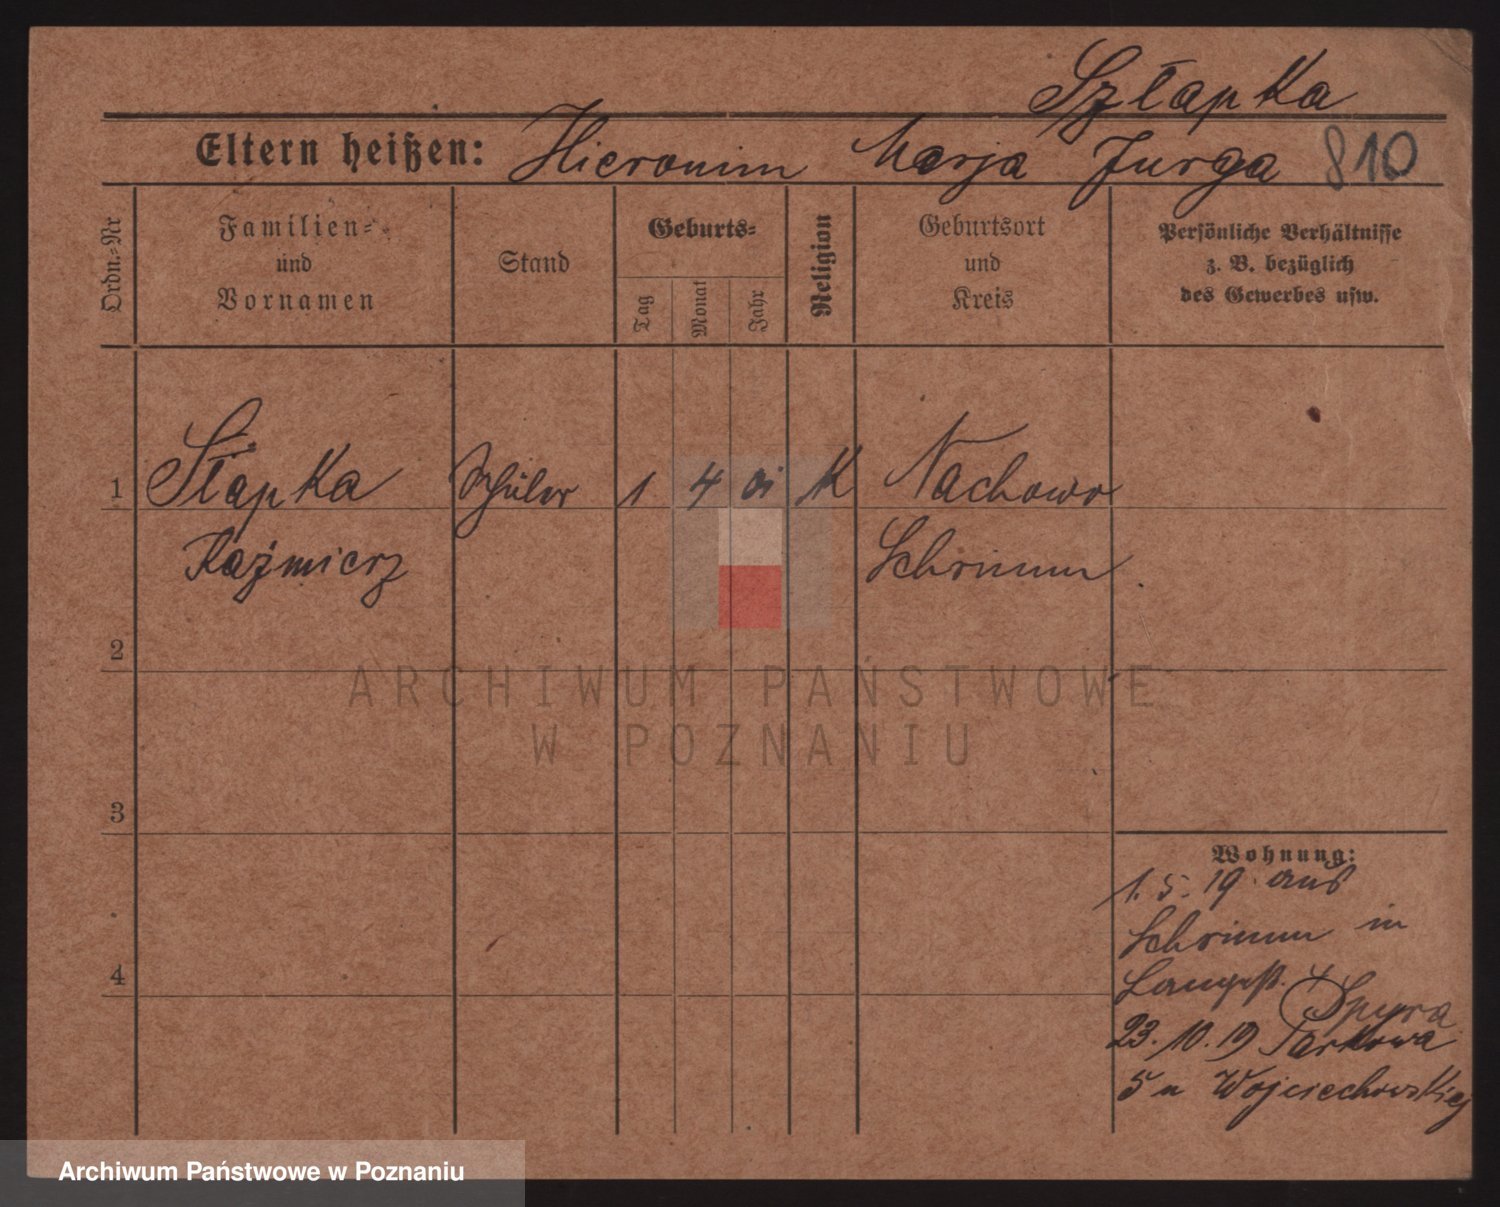 Szłapka
Eltern heißen: Hieronim Marja Jurga 810
Ordn.-Nr
Familien- und Vornamen
Stand
Geburts-
Tag
Monat
Jahr
Religion
Geburtsort und Kreis
Persönliche Verhältnisse
z. B. bezüglich
des Gewerbes usw.
1 Słapka Schüler 1 4 01 K Nachowo
Kaźmierz Schrimm
2
ARCHIWUM PAŃSTWOWE
W POZNANIU
3
Wohnung:
1. 5. 19 aus
Schrimm in
4
Langestr. 4
Spyra
23. 10. 19 Parkowa
5 u Wojciechowskiej
Archiwum Państwowe w Poznaniu